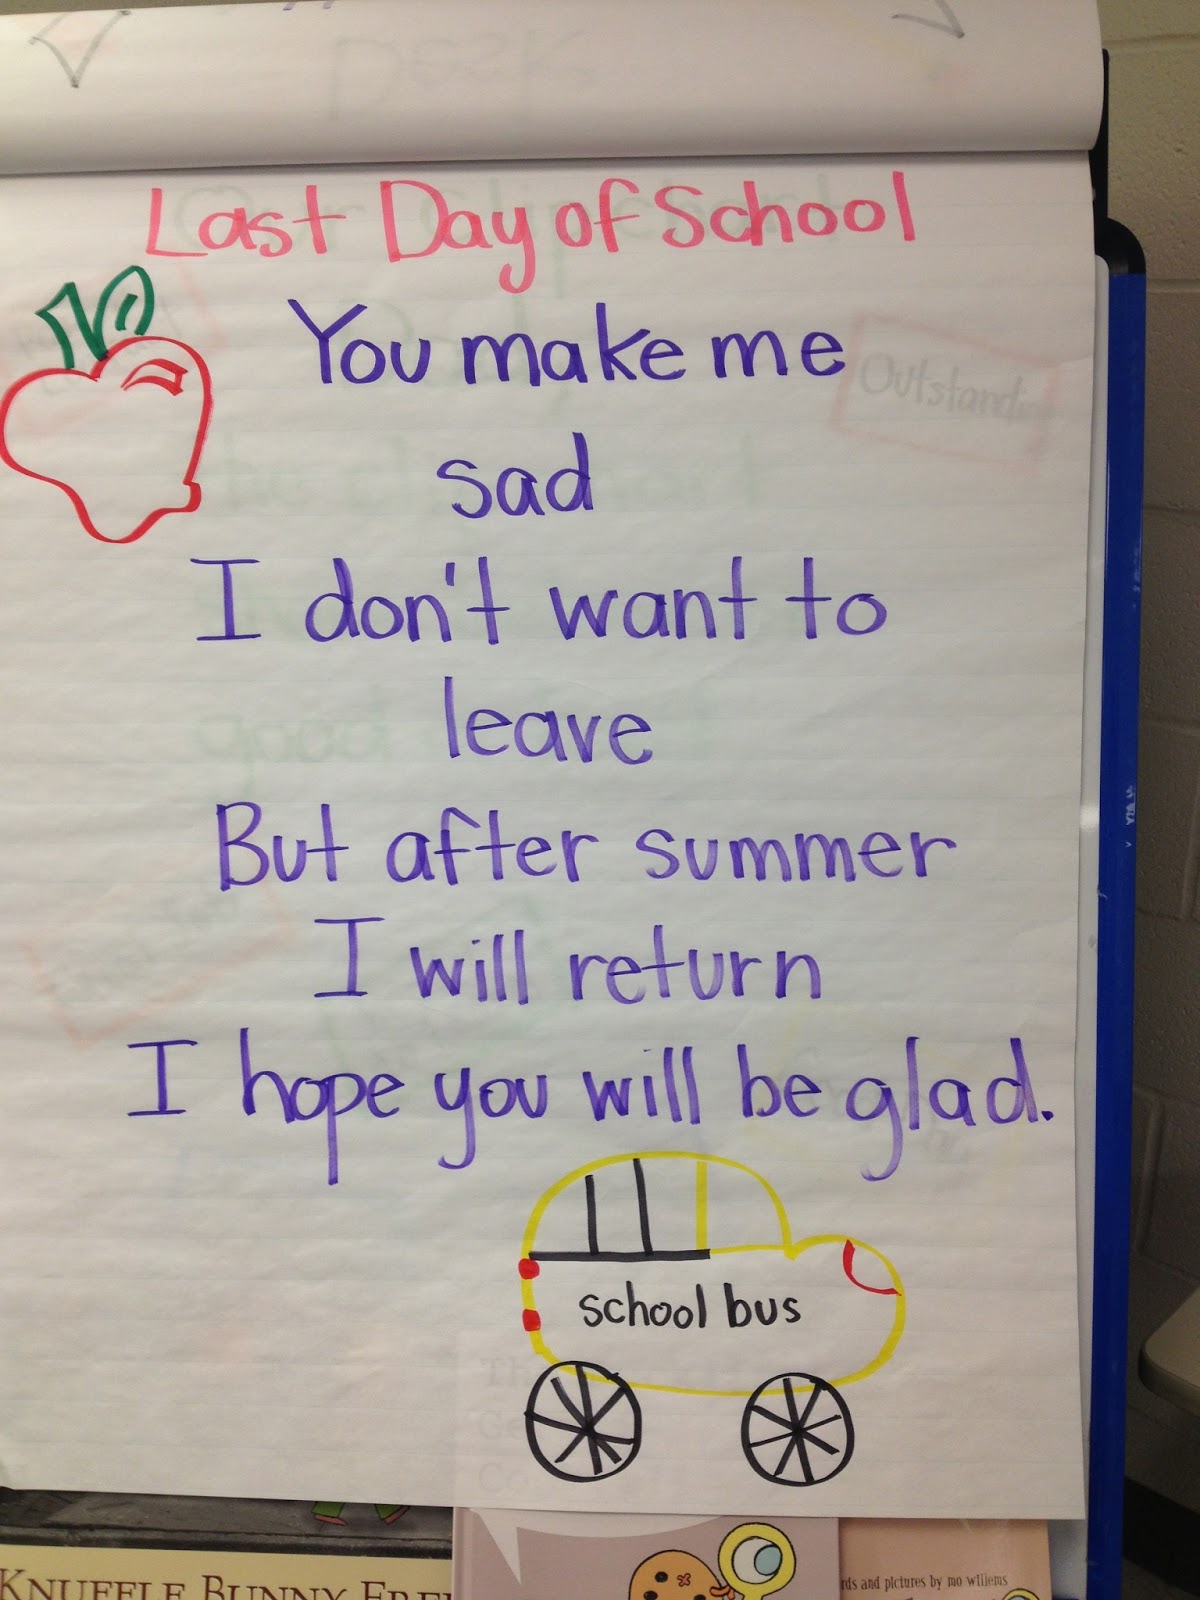 Last Day of School
You make me
sad
Outstanding
I don't want to
leave
But after summer
I will return
I hope you will be glad.
school bus
KNUFFLE BUNNY FREE
rds and pictures by mo willems